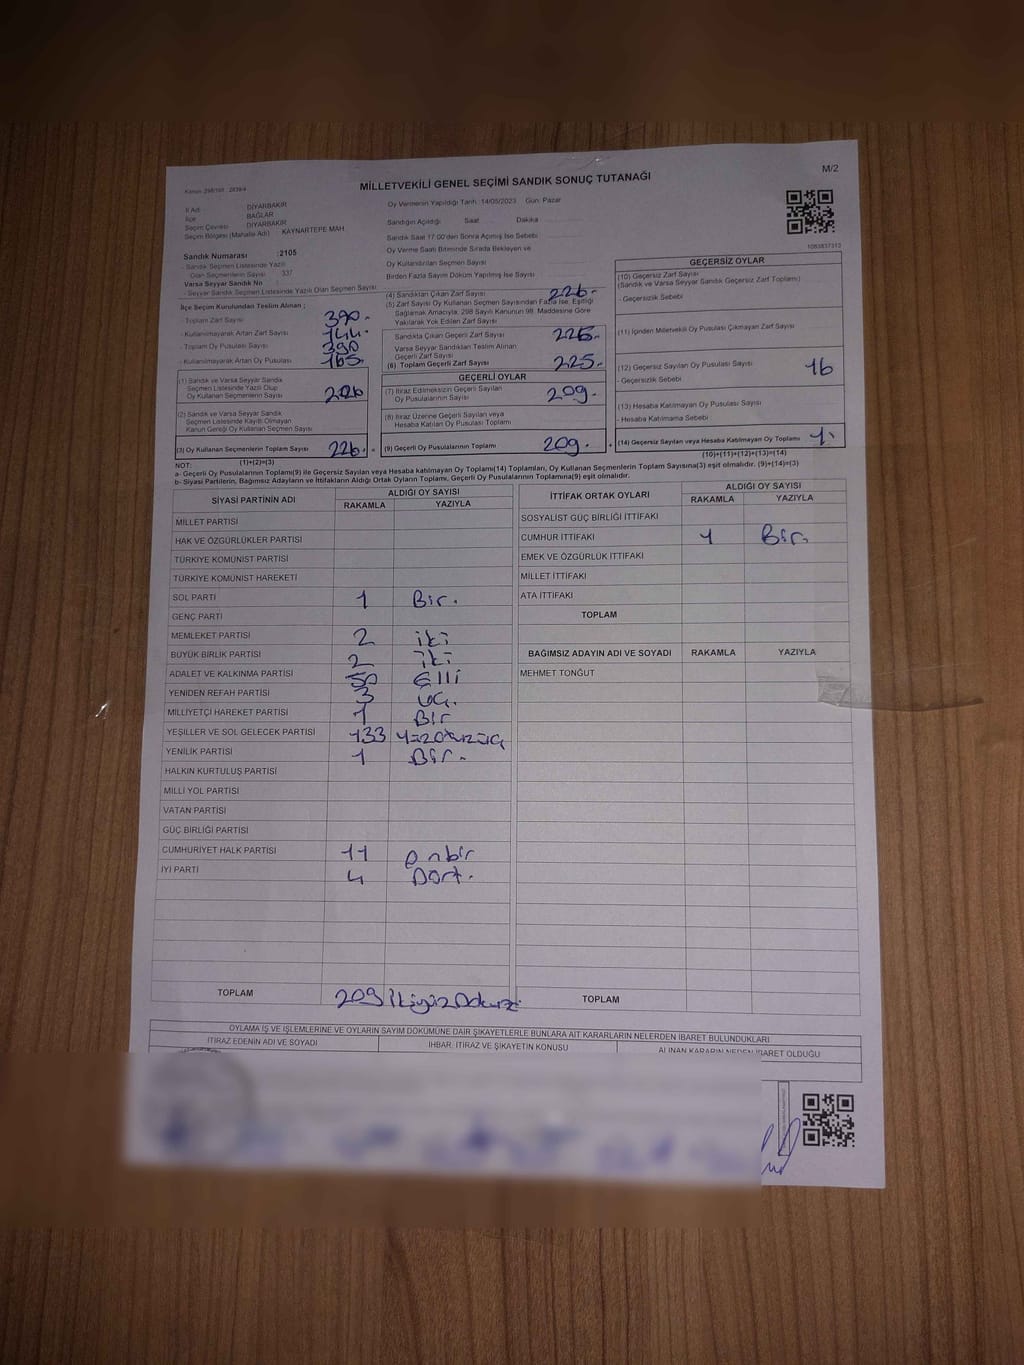 M/2
Kanun: 298/105 : 2839/4
MİLLETVEKİLİ GENEL SEÇİMİ SANDIK SONUÇ TUTANAĞI
İl Adı DİYARBAKIR
İlçe BAĞLAR
Seçim Çevresi DİYARBAKIR
Seçim Bölgesi (Mahalle Adı) KAYNARTEPE MAH.
Sandık Numarası : 2105
- Sandık Seçmen Listesinde Yazılı
Olan Seçmenlerin Sayısı 337
Varsa Seyyar Sandık No
- Seyyar Sandık Seçmen Listesinde Yazılı Olan Seçmen Sayısı
Oy Vermenin Yapıldığı Tarih : 14/05/2023 Gün: Pazar
Sandığın Açıldığı Saat Dakika
Sandık Saat 17:00'den Sonra Açılmış İse Sebebi
Oy Verme Saati Bitiminde Sırada Bekleyen ve
Oy Kullandırılan Seçmen Sayısı
Birden Fazla Sayım Döküm Yapılmış İse Sayısı
1083837312
İlçe Seçim Kurulundan Teslim Alınan ;
- Toplam Zarf Sayısı 390.
- Kullanılmayarak Artan Zarf Sayısı 144.
- Toplam Oy Pusulası Sayısı 390
- Kullanılmayarak Artan Oy Pusulası 165.
(1) Sandık ve Varsa Seyyar Sandık
Seçmen Listesinde Yazılı Olup
Oy Kullanan Seçmenlerin Sayısı 226
(2) Sandık ve Varsa Seyyar Sandık
Seçmen Listesinde Kayıtlı Olmayan
Kanun Gereği Oy Kullanan Seçmen Sayısı
(3) Oy Kullanan Seçmenlerin Toplam Sayısı 226.
(1)+(2)=(3)
(4) Sandıktan Çıkan Zarf Sayısı 226.
(5) Zarf Sayısı Oy Kullanan Seçmen Sayısından Fazla İse, Eşitliği
Sağlamak Amacıyla, 298 Sayılı Kanunun 98. Maddesine Göre
Yakılarak Yok Edilen Zarf Sayısı
Sandıkta Çıkan Geçerli Zarf Sayısı 225.
Varsa Seyyar Sandıktan Teslim Alınan
Geçerli Zarf Sayısı
(6) Toplam Geçerli Zarf Sayısı 225.
GEÇERLİ OYLAR
(7) İtiraz Edilmeksizin Geçerli Sayılan
Oy Pusulalarının Sayısı 209.
(8) İtiraz Üzerine Geçerli Sayılan veya
Hesaba Katılan Oy Pusulası Toplamı
= (9) Geçerli Oy Pusulalarının Toplamı 209.
GEÇERSİZ OYLAR
(10) Geçersiz Zarf Sayısı
(Sandık ve Varsa Seyyar Sandık Geçersiz Zarf Toplamı)
- Geçersizlik Sebebi
(11) İçinden Milletvekili Oy Pusulası Çıkmayan Zarf Sayısı
(12) Geçersiz Sayılan Oy Pusulası Sayısı 16
- Geçersizlik Sebebi
(13) Hesaba Katılmayan Oy Pusulası Sayısı
- Hesaba Katılmama Sebebi :
+ (14) Geçersiz Sayılan veya Hesaba Katılmayan Oy Toplamı
(10)+(11)+(12)+(13)=(14)
NOT:
a- Geçerli Oy Pusulalarının Toplamı(9) ile Geçersiz Sayılan veya Hesaba katılmayan Oy Toplamı(14) Toplamları, Oy Kullanan Seçmenlerin Toplam Sayısına(3) eşit olmalıdır. (9)+(14)=(3)
b- Siyasi Partilerin, Bağımsız Adayların ve İttifakların Aldığı Ortak Oyların Toplamı, Geçerli Oy Pusulalarının Toplamına(9) eşit olmalıdır.
SİYASİ PARTİNİN ADI ALDIĞI OY SAYISI
RAKAMLA YAZIYLA
MİLLET PARTİSİ
HAK VE ÖZGÜRLÜKLER PARTİSİ
TÜRKİYE KOMÜNİST PARTİSİ
TÜRKİYE KOMÜNİST HAREKETİ
SOL PARTİ 1 Bir.
GENÇ PARTİ
MEMLEKET PARTİSİ 2 iki
BÜYÜK BİRLİK PARTİSİ 2 iki
ADALET VE KALKINMA PARTİSİ 50 Elli
YENİDEN REFAH PARTİSİ 3 üç.
MİLLİYETÇİ HAREKET PARTİSİ 1 Bir
YEŞİLLER VE SOL GELECEK PARTİSİ 133 yüzotuzüç
YENİLİK PARTİSİ 1 Bir.
HALKIN KURTULUŞ PARTİSİ
MİLLİ YOL PARTİSİ
VATAN PARTİSİ
GÜÇ BİRLİĞİ PARTİSİ
CUMHURİYET HALK PARTİSİ 11 onbir
İYİ PARTİ 4 Dört.
TOPLAM 209 ikiyüzdokuz
İTTİFAK ORTAK OYLARI ALDIĞI OY SAYISI
RAKAMLA YAZIYLA
SOSYALİST GÜÇ BİRLİĞİ İTTİFAKI
CUMHUR İTTİFAKI 1 Bir.
EMEK VE ÖZGÜRLÜK İTTİFAKI
MİLLET İTTİFAKI
ATA İTTİFAKI
TOPLAM
BAĞIMSIZ ADAYIN ADI VE SOYADI RAKAMLA YAZIYLA
MEHMET TONĞUT
TOPLAM
OYLAMA İŞ VE İŞLEMLERİNE VE OYLARIN SAYIM DÖKÜMÜNE DAİR ŞİKAYETLERLE BUNLARA AİT KARARLARIN NELERDEN İBARET BULUNDUKLARI
İTİRAZ EDENİN ADI VE SOYADI İHBAR, İTİRAZ VE ŞİKAYETİN KONUSU ALINAN KARARIN NEDEN İBARET OLDUĞU